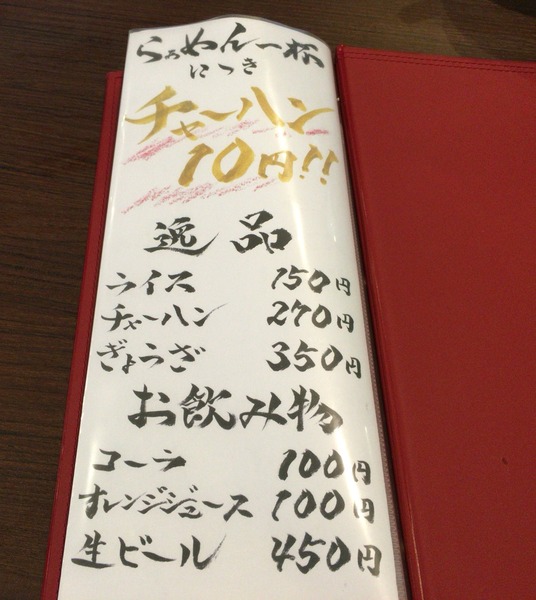 らぁめん一杯
につき
チャーハン
10円!!
逸品
ライス 150円
チャーハン 270円
ぎょうざ 350円
お飲み物
コーラ 100円
オレンジジュース 100円
生ビール 450円